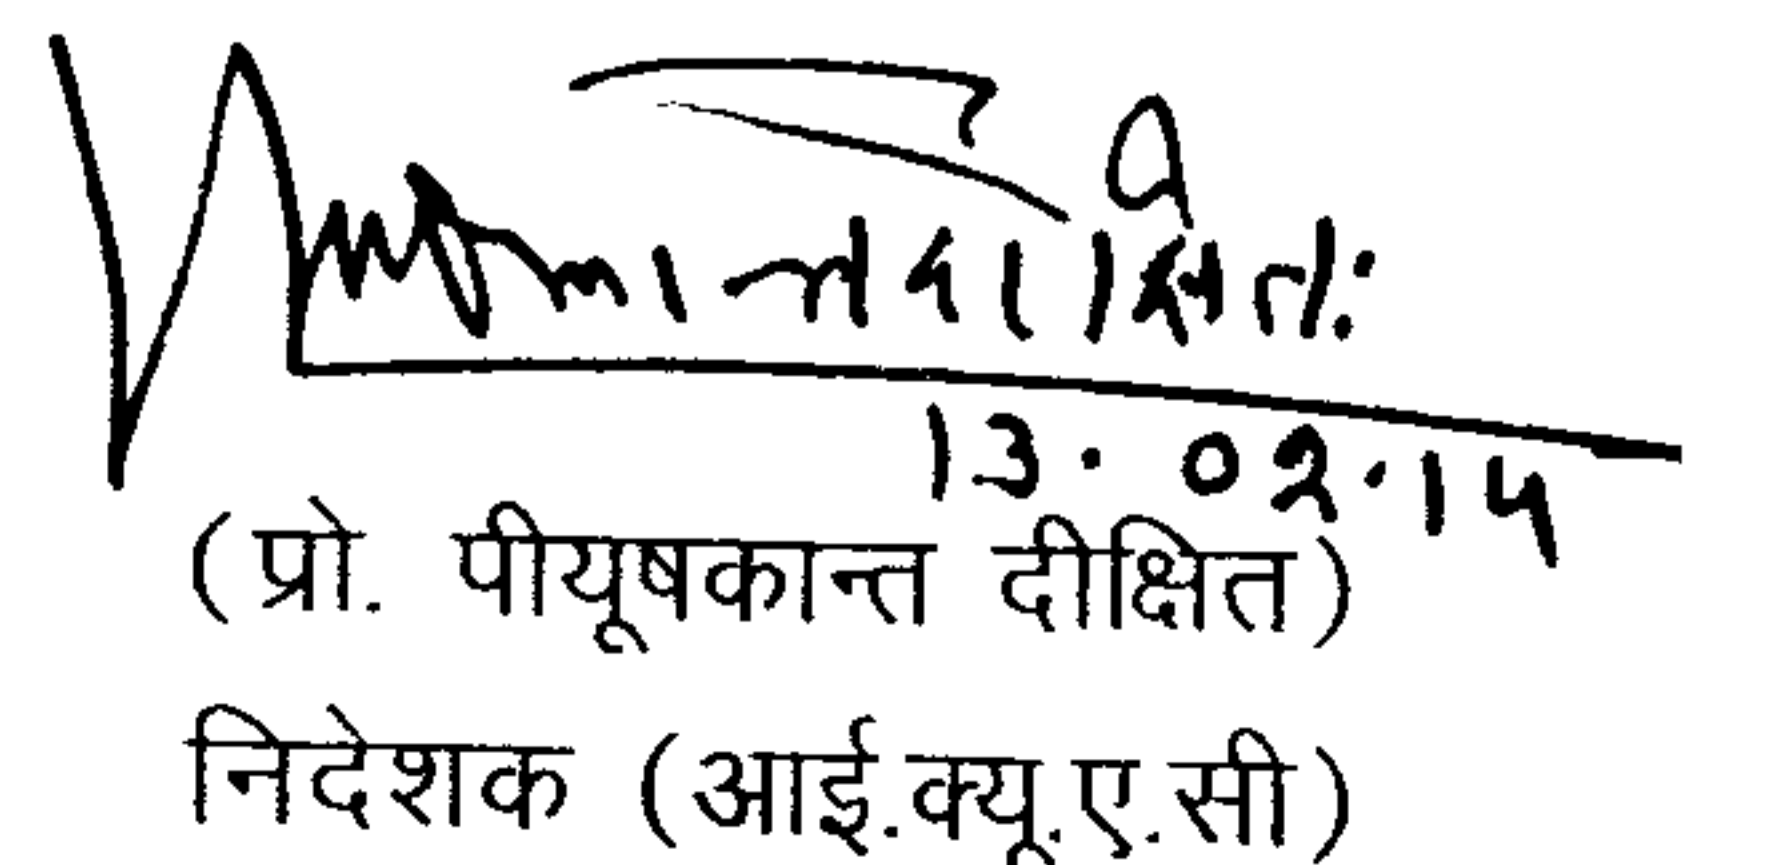 13.02.15
(प्रो. पीयूषकान्त दीक्षित)
निदेशक (आई.क्यू.ए.सी)